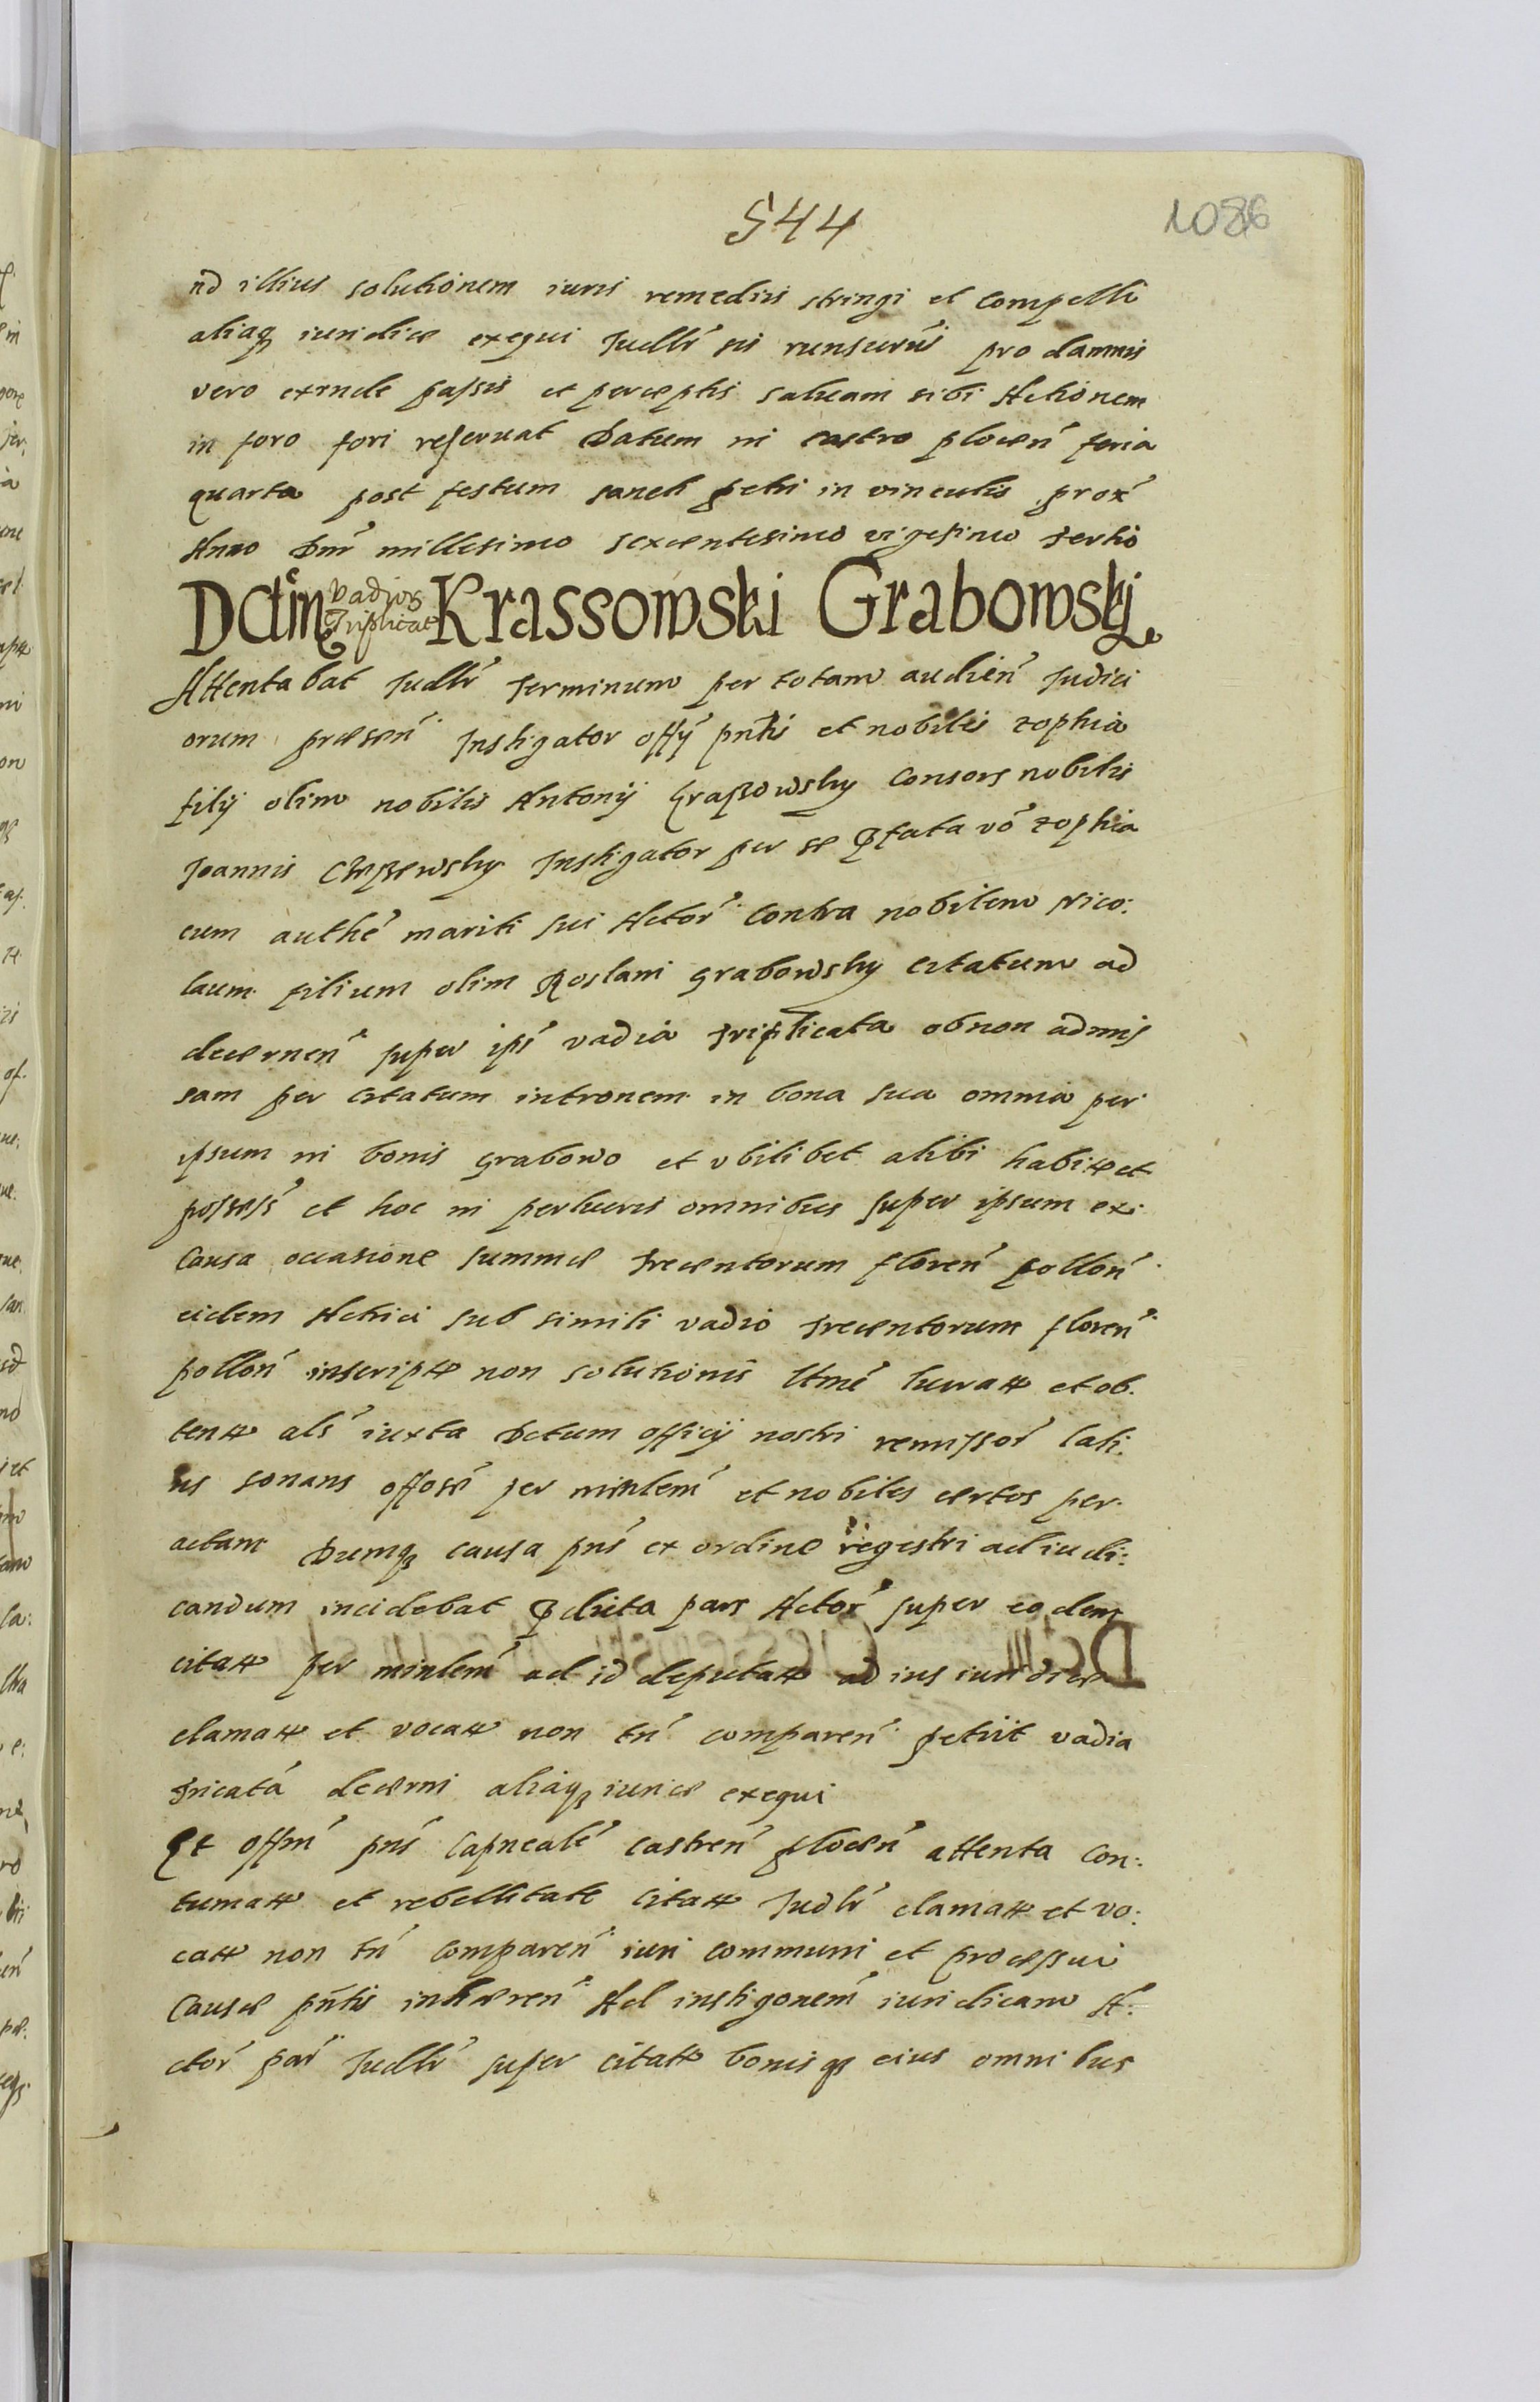 544
1086
ad illius solutionem iuris remediis stringi et compelli
aliaq iuridice exequi Judlr
pro damnis
vero exinde passis et perceptis saluam sibi Actionem
in foro fori reseruat Datum in castro plocen feria
quarta post festum sancti petri in vinculis prox
Anno Dnī millesimo sexcentesimo vigesimo tertio
Dctm Vadior Triplicat Krassowski Grabowskj
Attentabat Judlr Terminum per totam audien Judici
orum præsen Instigator offy pntis et nobilis zophia
filij olim nobilis Antonij Consors nobilis
Joannis Instigator per se pfata vo zophia
cum authe mariti sui Actor Contra nobilem Nico:
laum filium olim Roslani grabowsky citatum ad
decernen super ips vadia triplicata ob non admis
sam per citatum intronem in bona sua omnia per
ipsum in bonis grabowo et vbilibet alibi habitæ et
possess et hoc in perlucris omnibus super ipsum ex
Causa occasione summæ trecentorum floren pollon
eidem Actrici sub simili vadio trecentorum floren
pollon inscriptæ non solutionis ltme lucratæ et ob.
tentæ als iuxta Dctum officij nostri remissor lati:
us sonans offose per minlem et nobiles certos per
actam Dumq causa pns ex ordine regestri ad iudi:
candum incidebat pdicta pars Actor super eodem
citato per minlem ad id deputato ad ius iuridice
clamato et vocato non tn comparen petiit vadia
tricata decerni aliaq iurice exequi
Et offm pns Capneale castren plocen attenta Con:
tumatia et rebellitate citati Judlr clamati et vo:
cati non tn comparen iuri communi et processui
Causæ pntis inhæren Ad instigonem iuridicam A:
ctor par Judlr super citato bonisq eius omnibus